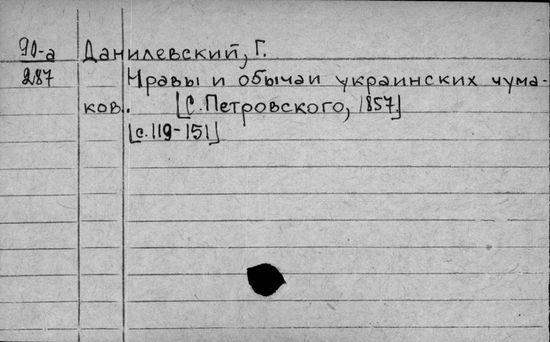 90-а Данилевский, Г.
287 Нравы и обычаи украинских чума-
ков. [С. Петровского, 1857]
[с. 119-151]